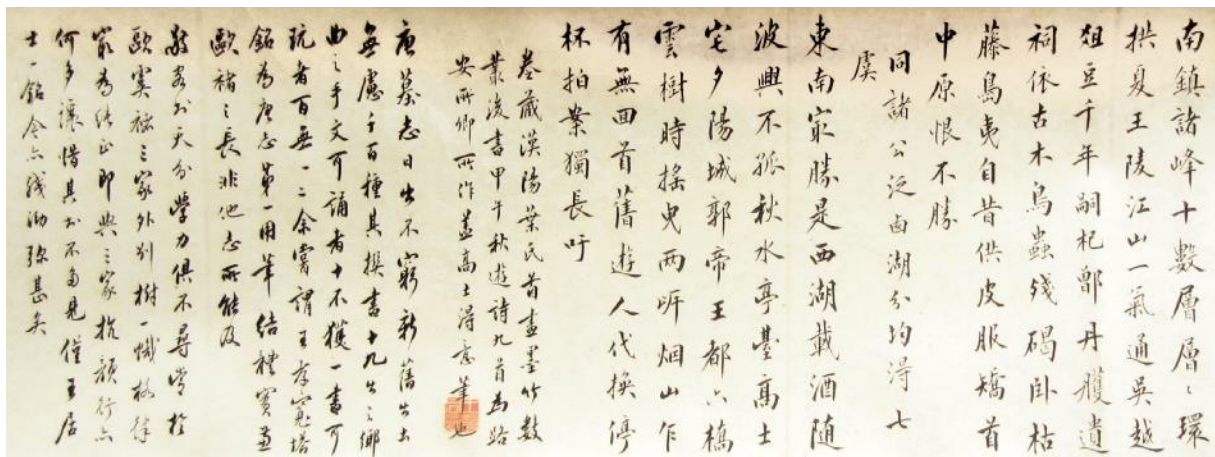 南鎮諸峰十數層層〻環
拱夏王陵江山一氣通吳越
俎豆千年嗣杞鄫丹雘遺
祠依古木鳥蟲殘碣卧枯
藤島夷自昔供皮服矯首
中原恨不勝
同諸公泛西湖分均得七
虞
東南最勝是西湖載酒隨
波興不孤秋水亭臺高士
宅夕陽城郭帝王都六橋
雲樹時搖曳兩岍烟山乍
有無回首舊遊人代換停
杯拍案獨長吁
卷藏漢陽葉氏首畫墨竹數
叢後書甲午秋遊詩九首為路
安所卿所作蓋高士得意筆也
唐墓志日出不窮新舊出土
無慮千百種其撰書十九出之鄉
曲之手文可誦者十不獲一書可
玩者百無一二余嘗謂王居士塼塔
銘為唐志第一用筆結體實兼
歐褚之長非他志所能及
敬客於天分學力俱不尋常於
歐虞褚三家外別樹一幟格律
最為純正即與三家抗顏行亦
何多讓惜其書不多見僅王居
士一銘今亦殘泐殊甚矣